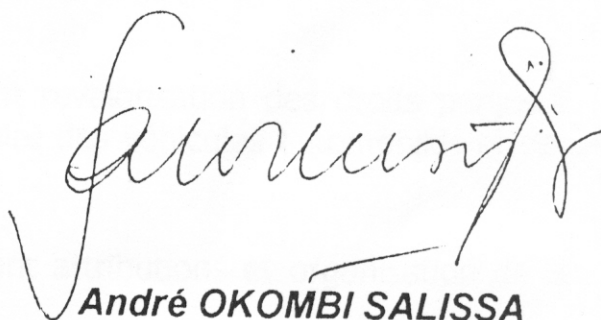 André OKOMBI SALISSA